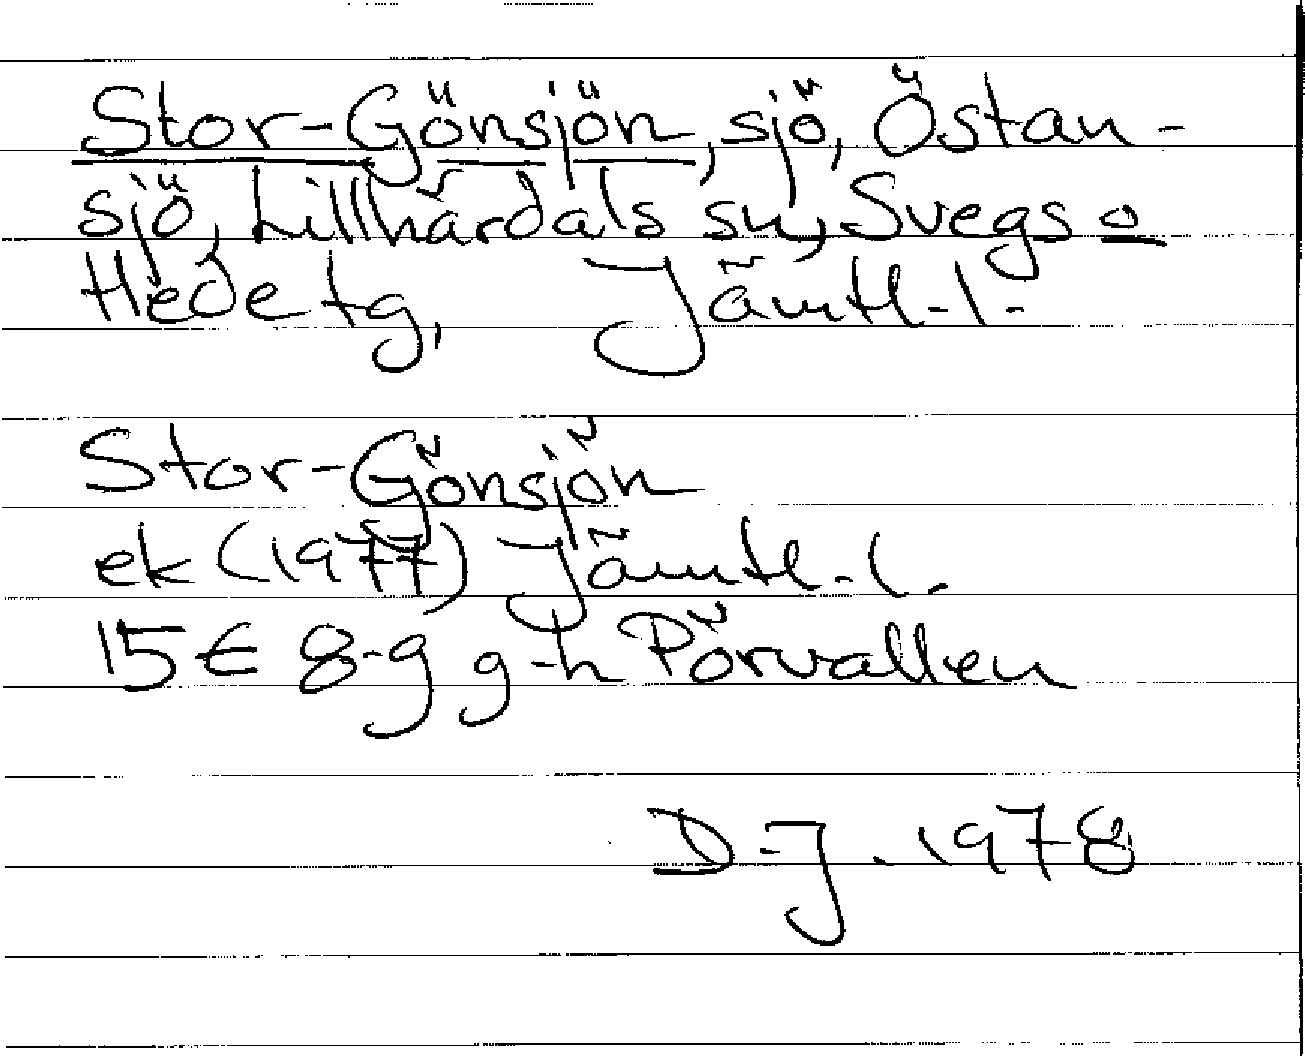 Stor-Gönsjön, sjö, Östan-
sjö, Lillhärdals sn, Svegs o
Hede tg, Jämtl. l.
Stor-Gönsjön
ek (1977) Jämtl. l.
15E 8-g g-h Pörvallen
D-J. 1978